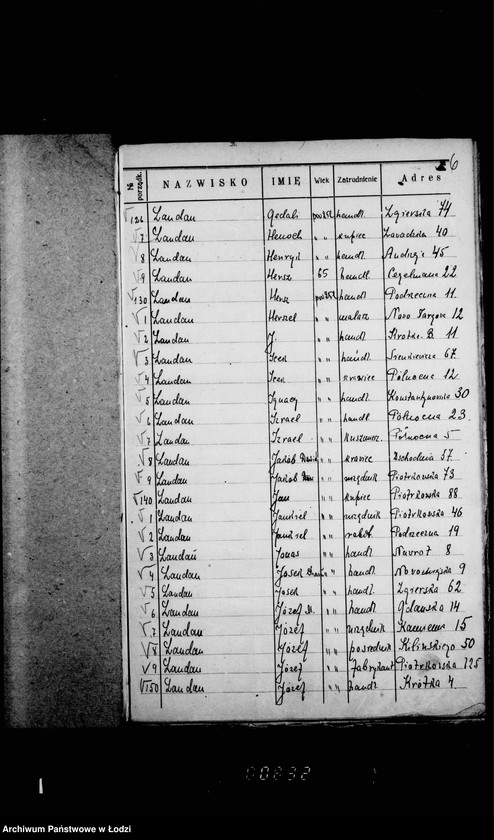 6
№ porządk. NAZWISKO IMIĘ Wiek Zatrudnienie Adres
126 Landau Gedali pow25l handl. Zgierska 74
7 Landau Henoch " " kupiec Zawadzka 40
8 Landau Henryk " " handl. Andrzeja 45
9 Landau Hersz 65 handl. Cegelniana 22
130 Landau Hersz pow25l handl. Podrzeczna 11
1 Landau Herszel " " malarz Nowo Targowa 12
2 Landau J. " " handl. Krótka 11
3 Landau Icek " " handl. Sienkiewicza 67
4 Landau Icek " " krawiec Północna 12
5 Landau Ignacy " " handl. Konstantynowska 30
6 Landau Izrael " " handl. Północna 23
7 Landau Izrael " " Północna 5
8 Landau Jakób " " krawiec Wschodnia 57
9 Landau Jakób " " urzędnik Piotrkowska 73
140 Landau Jan " " kupiec Piotrkowska 88
1 Landau Jandrel " " urzędnik Piotrkowska 46
2 Landau Jandrel " " robot. Podrzeczna 19
3 Landau Jonas " " handl. Nawrot 8
4 Landau Josek " " handl. Nowomiejska 9
5 Landau Josek " " handl. Zgierska 62
6 Landau Józef M. " " handl. Gdańska 14
7 Landau Józef " " urzędnik Kamienna 15
8 Landau Józef " " pośrednik Kilińskiego 50
9 Landau Józef " " fabrykant Piotrkowska 125
150 Landau Józef " " handl. Krótka 4.
00232
Archiwum Państwowe w Łodzi